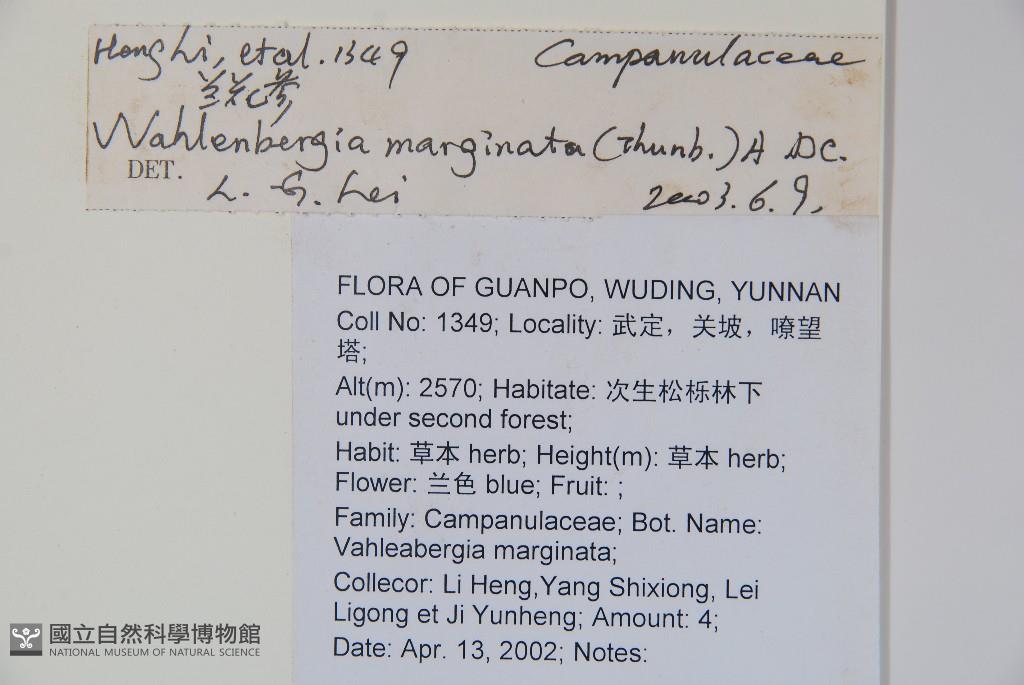 Heng Li, et al. 1349 Campanulaceae
兰花参
Wahlenbergia marginata (Thunb.) A DC.
DET. L. G. Lei 2003.6.9,
FLORA OF GUANPO, WUDING, YUNNAN
Coll No: 1349; Locality: 武定，关坡，嘹望
塔;
Alt(m): 2570; Habitate: 次生松栎林下
under second forest;
Habit: 草本 herb; Height(m): 草本 herb;
Flower: 兰色 blue; Fruit: ;
Family: Campanulaceae; Bot. Name:
Vahleabergia marginata;
Collecor: Li Heng,Yang Shixiong, Lei
Ligong et Ji Yunheng; Amount: 4;
Date: Apr. 13, 2002; Notes:
國立自然科學博物館
NATIONAL MUSEUM OF NATURAL SCIENCE